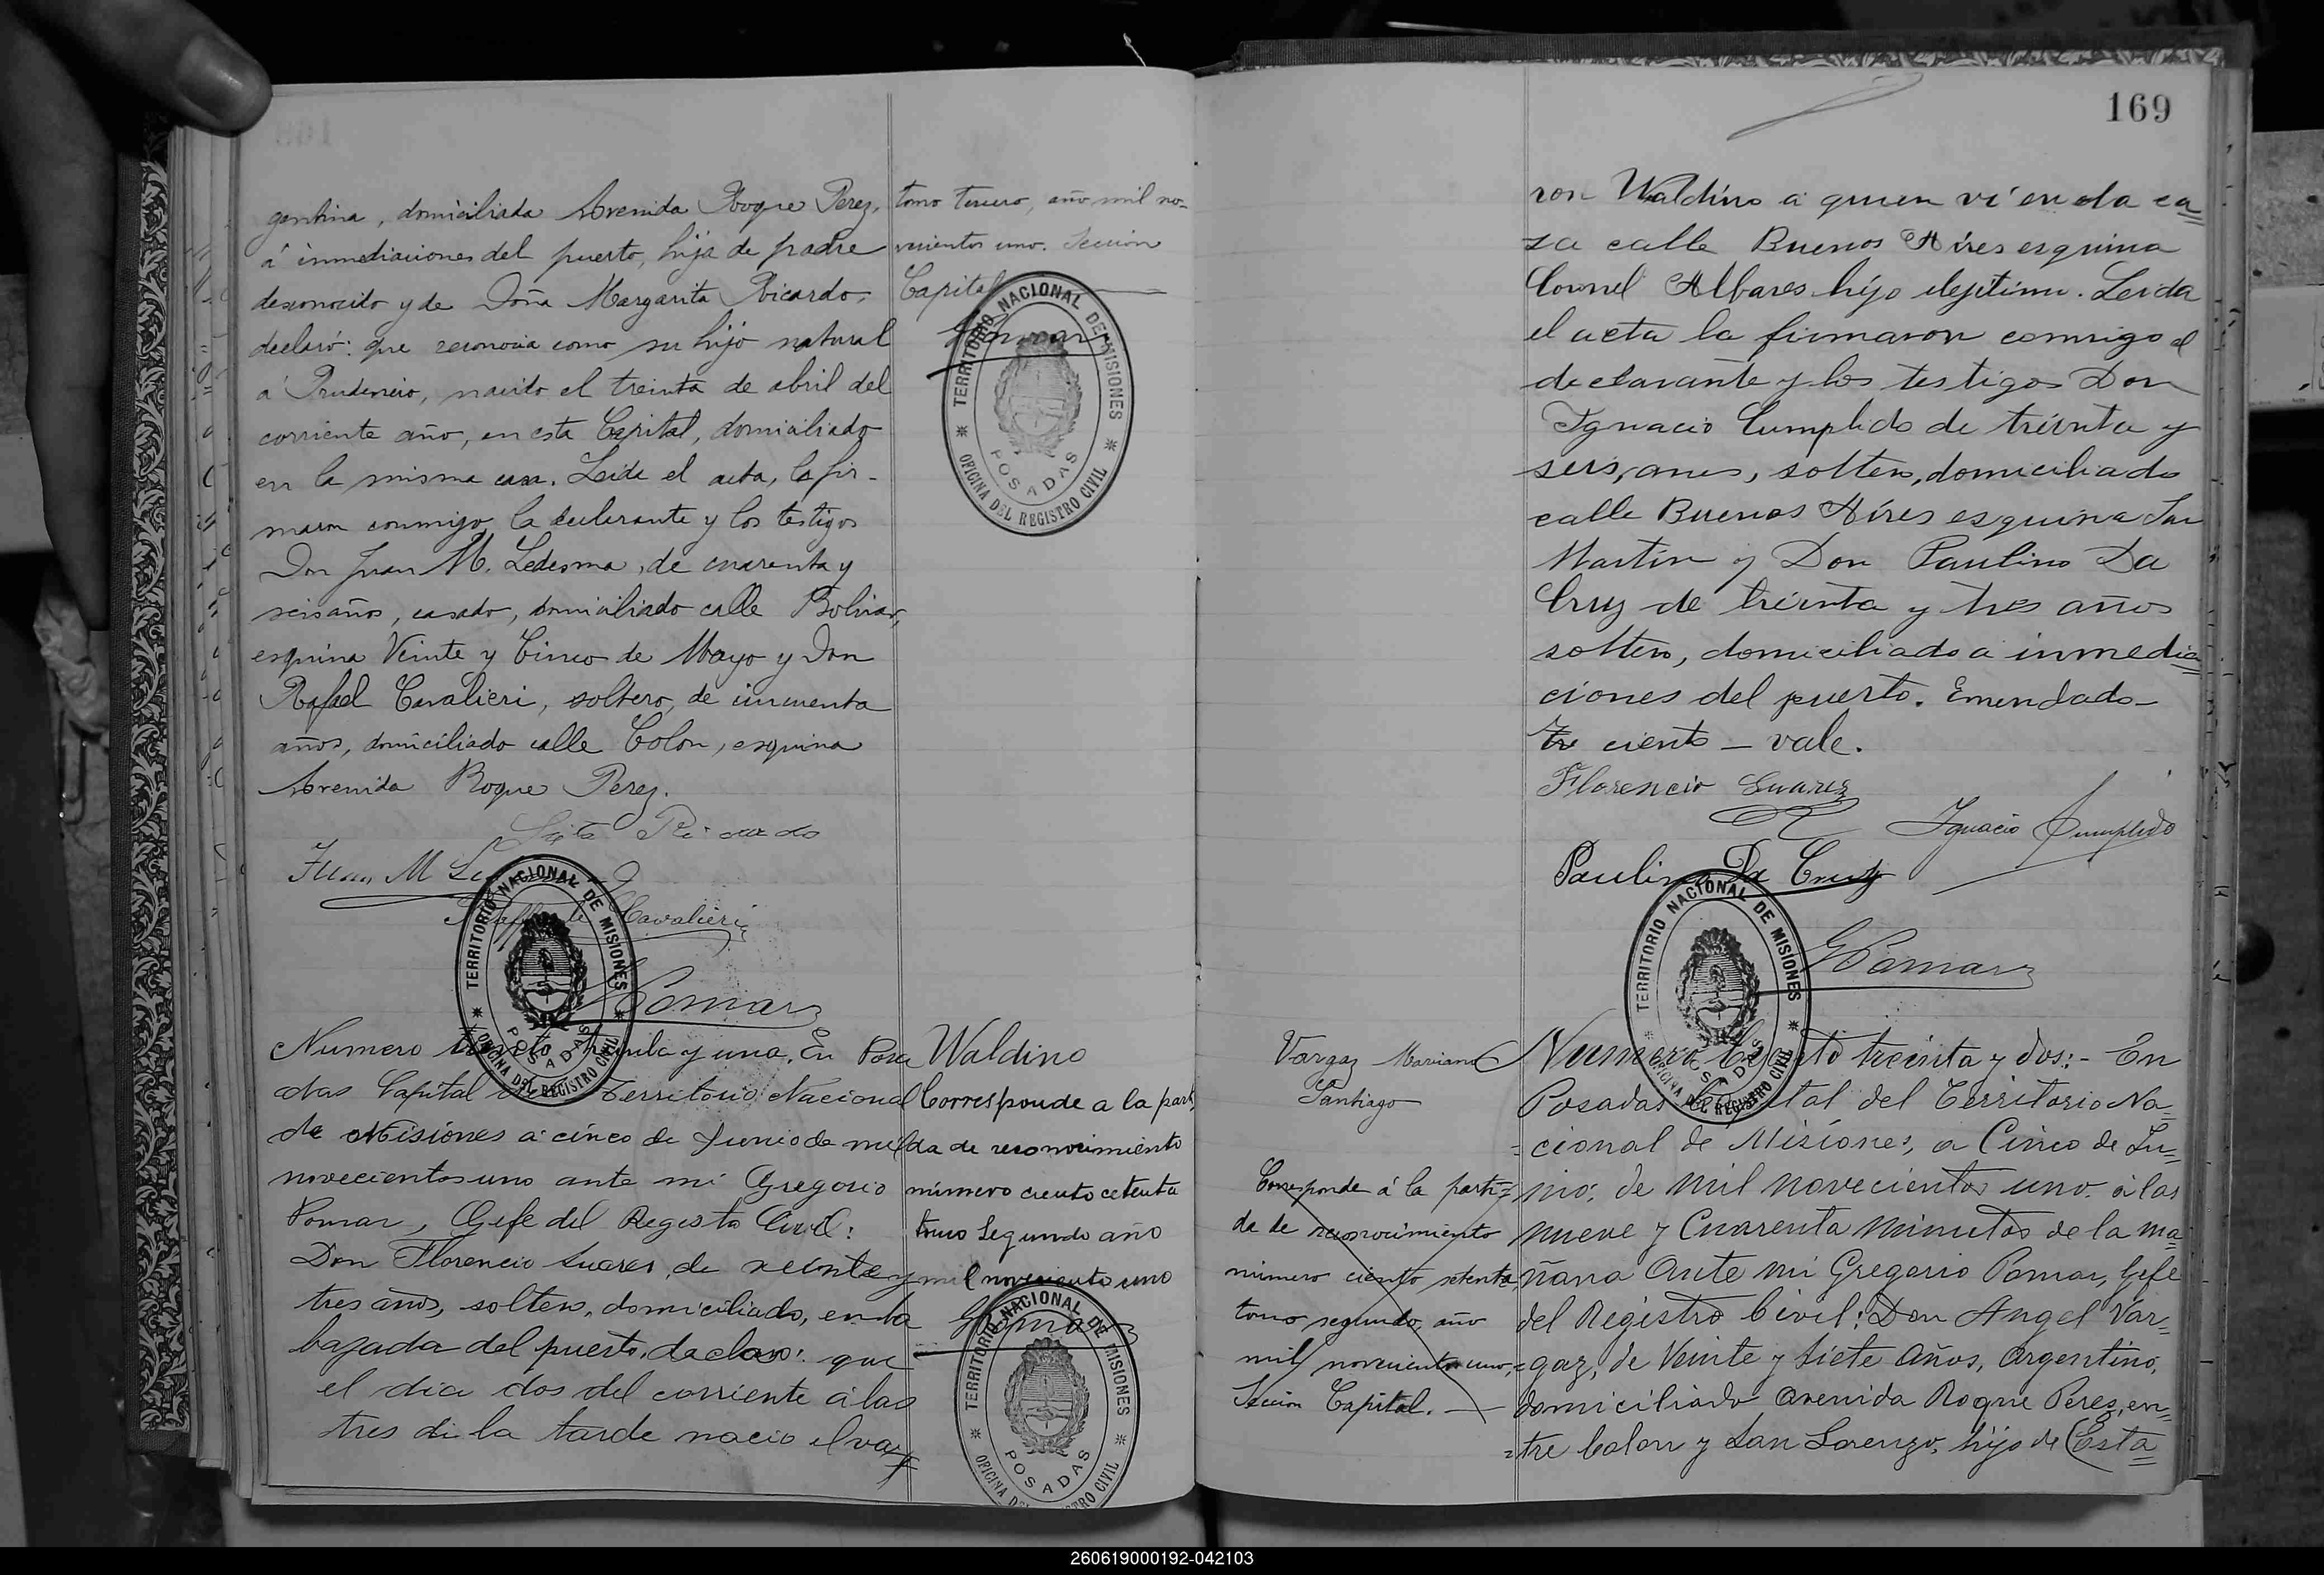 gentina, domiciliada Avenida Roque Perez,
á inmediaciones del puerto, hija de padre
desconocido y de Doña Margarita Ricardo,
declaró: que reconocia como su hijo natural
a Prudencio, nacido el treinta de abril del
corriente año, en esta Capital, domiciliado
en la misma casa. Leida el acta, la fir-
maron conmigo, la declarante y los testigos
Don Juan M. Ledesma, de cuarenta y
seis años, casado, domiciliado calle Bolivar,
esquina Veinte y Cinco de Mayo y Don
Rafael Cavalieri, soltero, de cincuenta
años, domiciliado calle Colon, esquina
Avenida Roque Perez.
Ricardo
Juan M
Cavalieri
GPomar
TERRITORIO NACIONAL DE MISIONES
POSADAS
OFICINA DEL REGISTRO CIVIL
tomo tercero, año mil no-
vecientos uno. Seccion
Capital
GPomar
TERRITORIO NACIONAL DE MISIONES
POSADAS
OFICINA DEL REGISTRO CIVIL
Numero treinta y uno. En Posa
das Capital del Territorio Nacional
de Misiones a cinco de Junio de mil
novecientos uno ante mi Gregorio
Pomar, Gefe del Registro Civil:
Don Florencio Suares, de veinte y
tres años, soltero, domiciliado, en la
bajada del puerto, declaro: que
el dia dos del corriente a las
tres de la tarde nacio el va
Waldino
Corresponde a la parti
da de reconocimiento
número ciento cetenta
tomo Segundo año
mil noveciento uno
GPomar
TERRITORIO NACIONAL DE MISIONES
POSADAS
OFICINA DEL REGISTRO CIVIL
169
ron Waldino a quien vi en la ca=
sa calle Buenos Aires esquina
Coronel Albares hijo ilejitimo. Leida
el acta la firmaron conmigo el
declarante y los testigos Don
Ignacio Cumplido de treinta y
seis, anos, soltero, domiciliado
calle Buenos Aires esquina San
Martin y Don Paulino Da
Cruz de treinta y tres años
soltero, domiciliado a inmedia=
ciones del puerto. Emendado—
ciento — vale.
Florencio Suarez
Ignacio Cumplido
Paulino Da Cruz
GPomar
TERRITORIO NACIONAL DE MISIONES
POSADAS
OFICINA DEL REGISTRO CIVIL
Vargaz Mariano
Santiago
Corresponde á la parti=
da de reconocimiento
número ciento setenta,
tomo segundo, año
mil novecientos uno,
Seccion Capital. —
Numero Ciento treinta y dos:- En
Posadas Capital del Territorio Na=
=cional de Misiones, a Cinco de Ju=
nio; de mil novecientos uno. a las
nueve y Cuarenta minutos de la ma=
ñana Ante mi Gregorio Pomar, Gefe
del Registro Civil: Don Angel Var=
=gaz, de Veinte y Siete Años, Argentino,
domiciliado avenida Roque Peres, en=
=tre Colon y San Lorenzo, hijo de Esta=
260619000192-042103